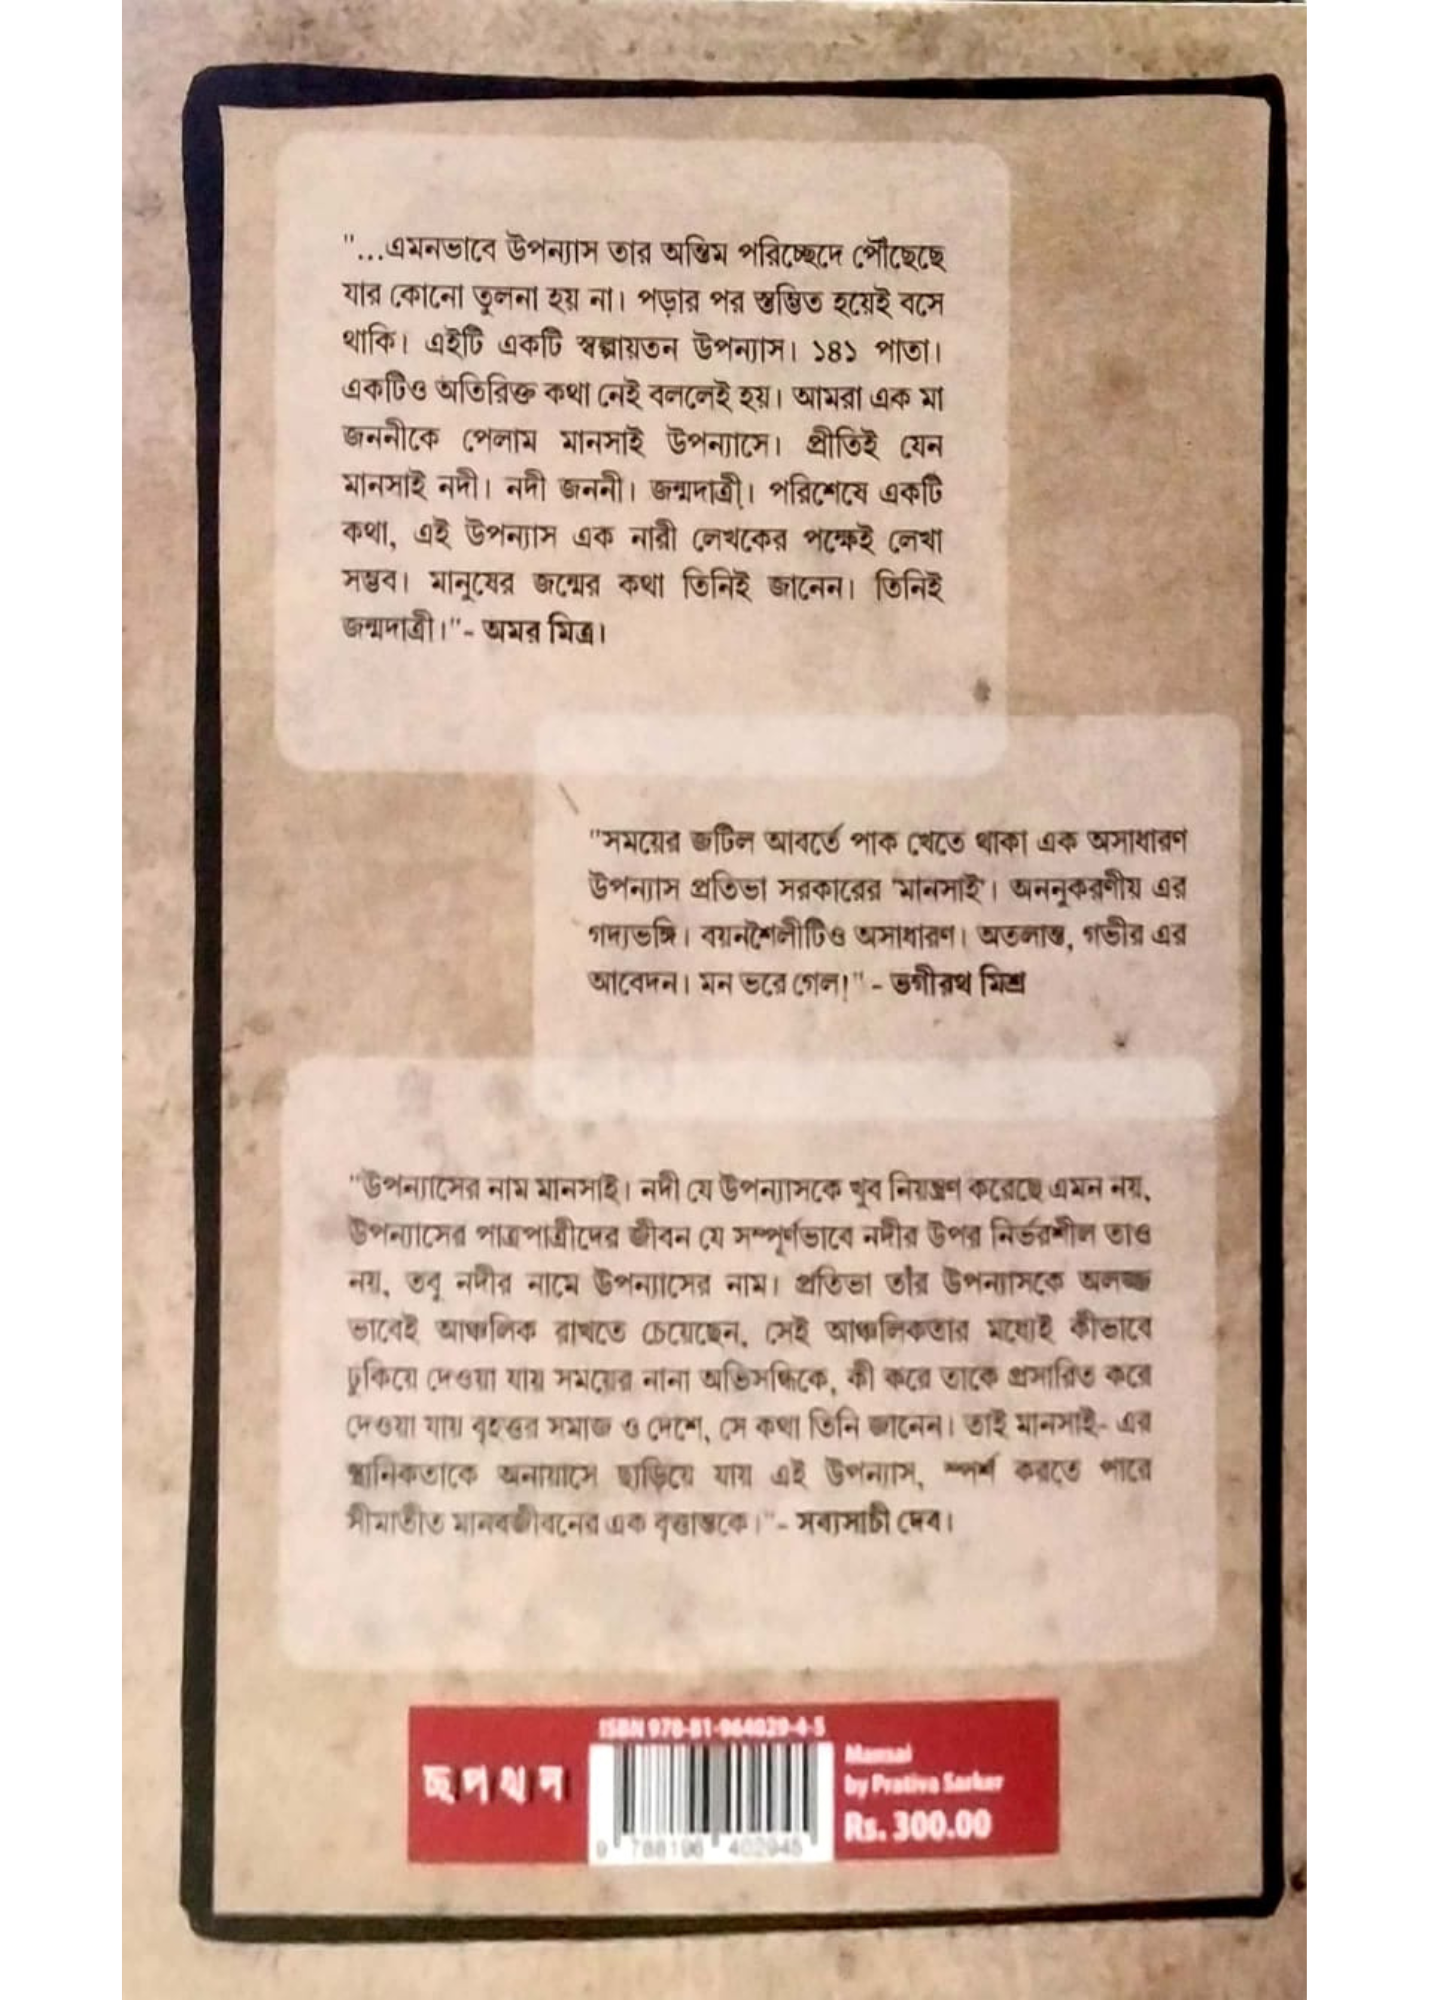 "...এমনভাবে উপন্যাস তার অন্তিম পরিচ্ছেদে পৌঁছেছে
যার কোনো তুলনা হয় না। পড়ার পর স্তম্ভিত হয়েই বসে
থাকি। এইটি একটি স্বল্পায়তন উপন্যাস। ১৪১ পাতা।
একটিও অতিরিক্ত কথা নেই বললেই হয়। আমরা এক মা
জননীকে পেলাম মানসাই উপন্যাসে। প্রীতিই যেন
মানসাই নদী। নদী জননী। জন্মদাত্রী। পরিশেষে একটি
কথা, এই উপন্যাস এক নারী লেখকের পক্ষেই লেখা
সম্ভব। মানুষের জন্মের কথা তিনিই জানেন। তিনিই
জন্মদাত্রী।"- অমর মিত্র।
"সময়ের জটিল আবর্তে পাক খেতে থাকা এক অসাধারণ
উপন্যাস প্রতিভা সরকারের 'মানসাই'। অননুকরণীয় এর
গদ্যভঙ্গি। বয়নশৈলীটিও অসাধারণ। অতলান্ত, গভীর এর
আবেদন। মন ভরে গেল!" - ভগীরথ মিশ্র
"উপন্যাসের নাম মানসাই। নদী যে উপন্যাসকে খুব নিয়ন্ত্রণ করেছে এমন নয়,
উপন্যাসের পাত্রপাত্রীদের জীবন যে সম্পূর্ণভাবে নদীর উপর নির্ভরশীল তাও
নয়, তবু নদীর নামে উপন্যাসের নাম। প্রতিভা তাঁর উপন্যাসকে অলজ্জ
ভাবেই আঞ্চলিক রাখতে চেয়েছেন, সেই আঞ্চলিকতার মধ্যেই কীভাবে
ঢুকিয়ে দেওয়া যায় সময়ের নানা অভিসন্ধিকে, কী করে তাকে প্রসারিত করে
দেওয়া যায় বৃহত্তর সমাজ ও দেশে, সে কথা তিনি জানেন। তাই মানসাই- এর
স্থানিকতাকে অনায়াসে ছাড়িয়ে যায় এই উপন্যাস, স্পর্শ করতে পারে
সীমাতীত মানবজীবনের এক বৃত্তান্তকে।"- সব্যসাচী দেব।
ISBN 978-81-964029-4-5
ছ প খ ল
Mansai
by Prativa Sarker
Rs. 300.00
9 788196 402945